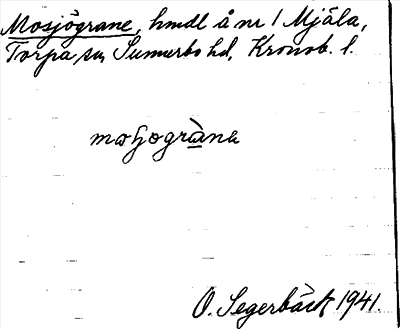 Mosjögrane, hmdl å nr 1 Mjäla,
Torpa sn, Sunnerbo hd, Kronob. l.
moʃøgràna
O. Segerbäck 1941.